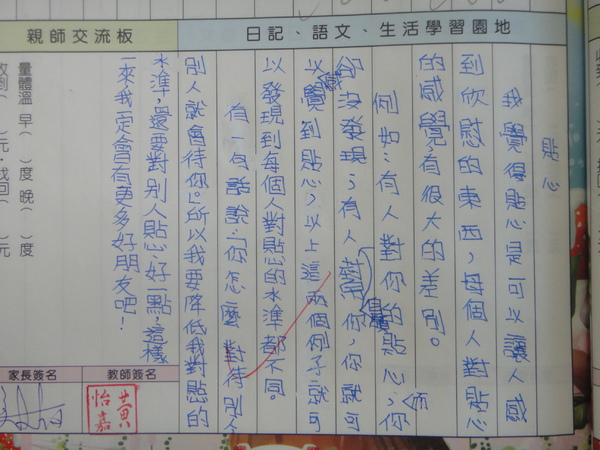 日記、語文、生活學習園地
貼心
我覺得貼心是可以讓人感
到欣慰的東西，每個人對貼心
的感覺有很大的差別。
例如：有人對你的貼心，你
卻沒發現；有人幫你，你就可
而
自
以感覺到貼心，以上這兩個例子就可
以發現到每個人對貼心的水準都不同。
有一句話說：「你怎麼對待別人
別人就會待你。」所以我要降低我對貼的
水準，還要對別人貼心好一點，這樣
一來我一定會有更多好朋友吧！
親師交流板
量體溫 早( )度 晚( )度
收到( )元，找回( )元
家長簽名
教師簽名
黃怡嘉